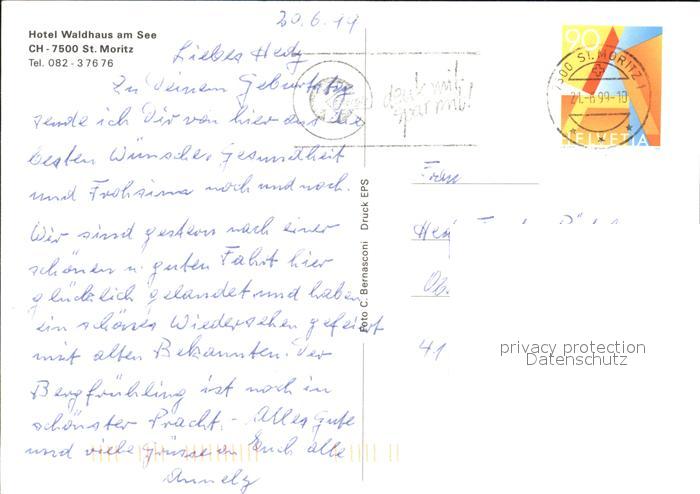 Hotel Waldhaus am See
CH - 7500 St. Moritz
Tel. 082 - 3 76 76
20.6.99
Liebes Hedy
Zu Deinem Geburtstag
sende ich Dir von hier aus die
besten Wünsche, Gesundheit
und Frohsinn noch und noch.
Wir sind gestern nach einer
schönen u. guten Fahrt hier
glücklich gelandet und haben
ein schönes Wiedersehen gefeiert
mit alten Bekannten. Der
Bergfrühling ist noch in
schönster Pracht. - Alles Gute
und viele Grüsse an Euch alle
Annely
Foto C. Bernasconi Druck EPS
90
HELVETIA
7500 ST. MORITZ 1
21.-6.99-10
Frau
41
privacy protection
Datenschutz